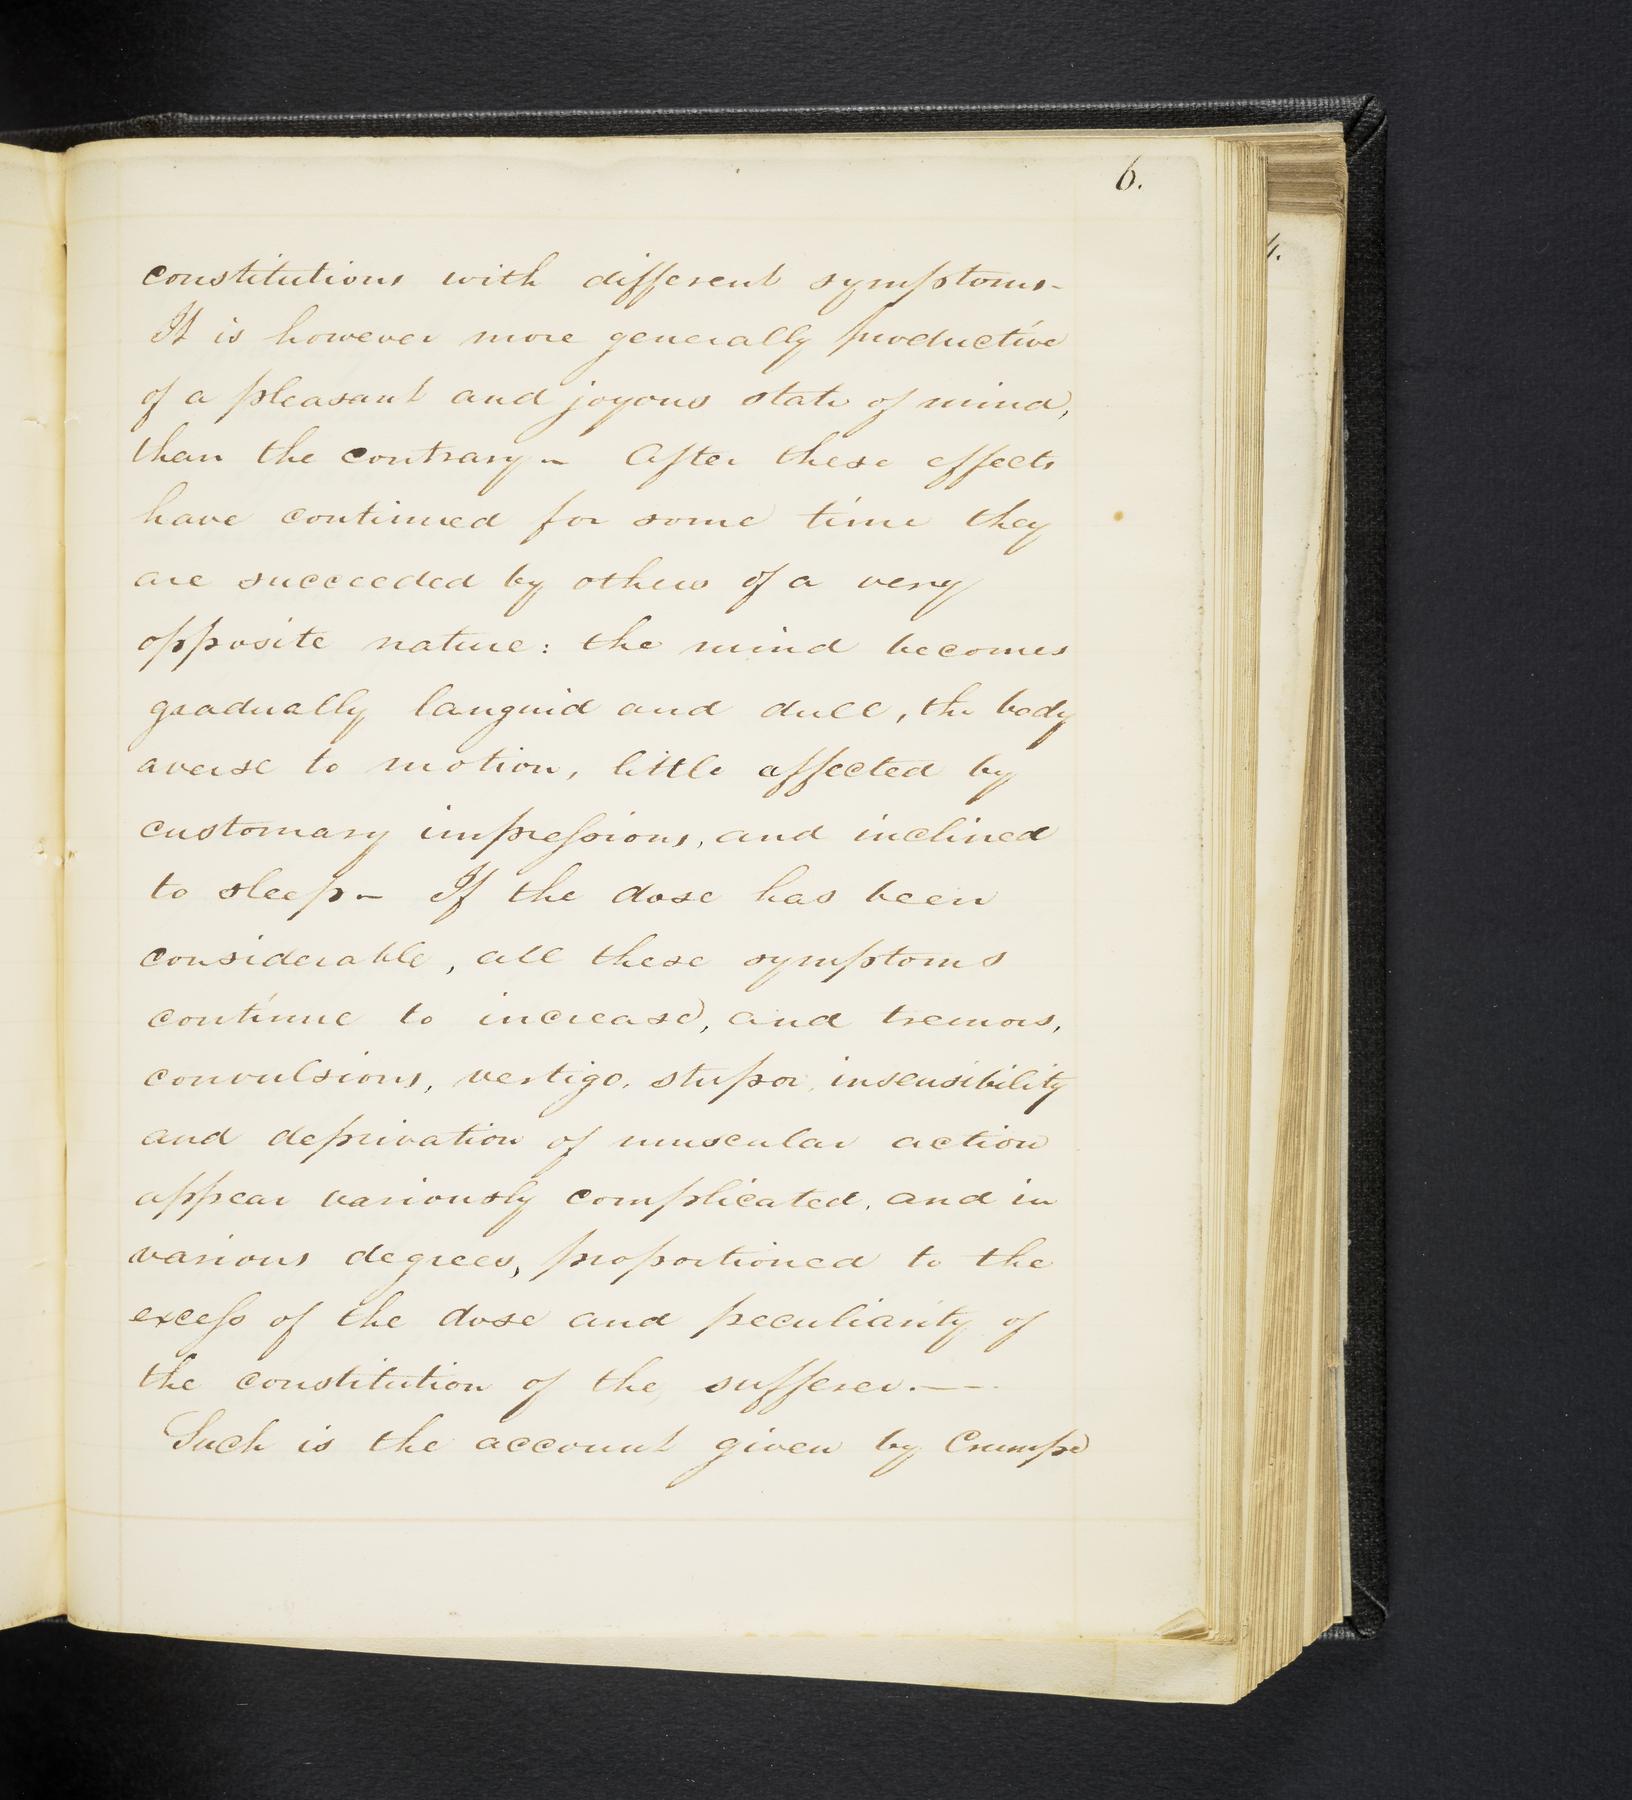 6.
constitutions with different symptoms-
It is however more generally productive
of a pleasant and joyous state of mind,
than the contrary- After these effects
have continued for some time they
are succeeded by others of a very
opposite nature: the mind becomes
gradually languid and dull, the body
averse to motion, little affected by
customary impreſsions, and inclined
to sleep- If the dose has been
considerable, all these symptoms
continue to increase, and tremors,
convulsions, vertigo, stupor, insensibility
and deprivation of muscular action
appear variously complicated, and in
various degrees, proportioned to the
exceſs of the dose and peculiarity of
the constitution of the sufferer.—
Such is the account given by Crumpe